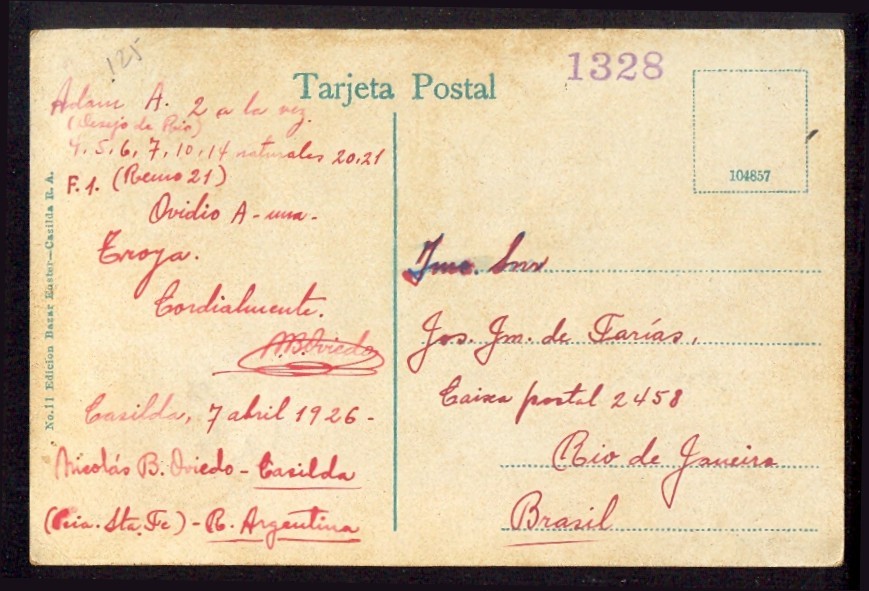 125
Tarjeta Postal
1328
104857
Adam A. 2 a la vez.
(Desejo de Rio)
4, 5, 6, 7, 10, 14 naturales 20, 21
F. 1. (Remo 21)
Ovidio A - una -
Troya.
Cordialmente.
N.B. Oviedo
Casilda, 7 abril 1926 -
Nicolás B. Oviedo - Casilda
(Pcia. Sta. Fe) - R. Argentina
No. 11 Edicion Bazar Euster—Casilda R. A.
Snr
Jos. Jm. de Farías,
Caixa postal 2458
Rio de Janeiro
Brasil